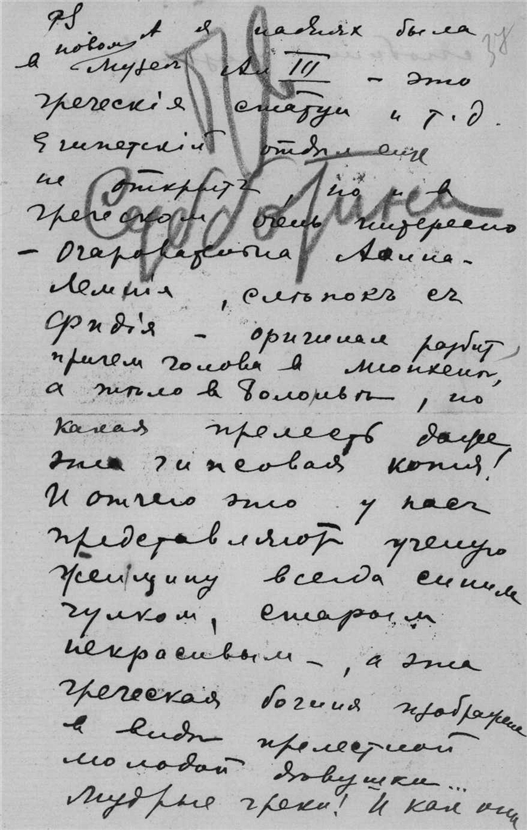 PS
А я на днях была
в новом Музее Ал III – это
греческія статуи и т.д.
Египетскій отдѣл еще
не открытъ, но и в
греческом очень интересно
– Очаровательна Аѳина-
Лемнія, слѣпокъ съ
Фидія – оригинал разбит,
причем голова в Мюнхенѣ,
а тѣло в Болоньѣ, но
какая прелесть даже
эта гипсовая копія!
И отчего это у насъ
представляют ученую
женщину всегда синим
чулком, старым
некрасивым –, а эта
греческая богиня изображена
в видѣ прелестной
молодой дѣвушки...
Мудрые греки! И как они
38